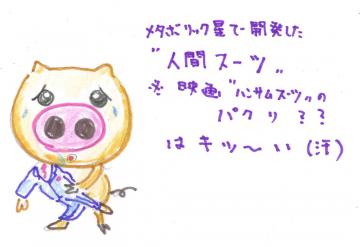 メタボリック星で開発した
"人間スーツ"
※ 映画"ハンサムスーツ"の
パクリ??
はキツ〜い(汗)